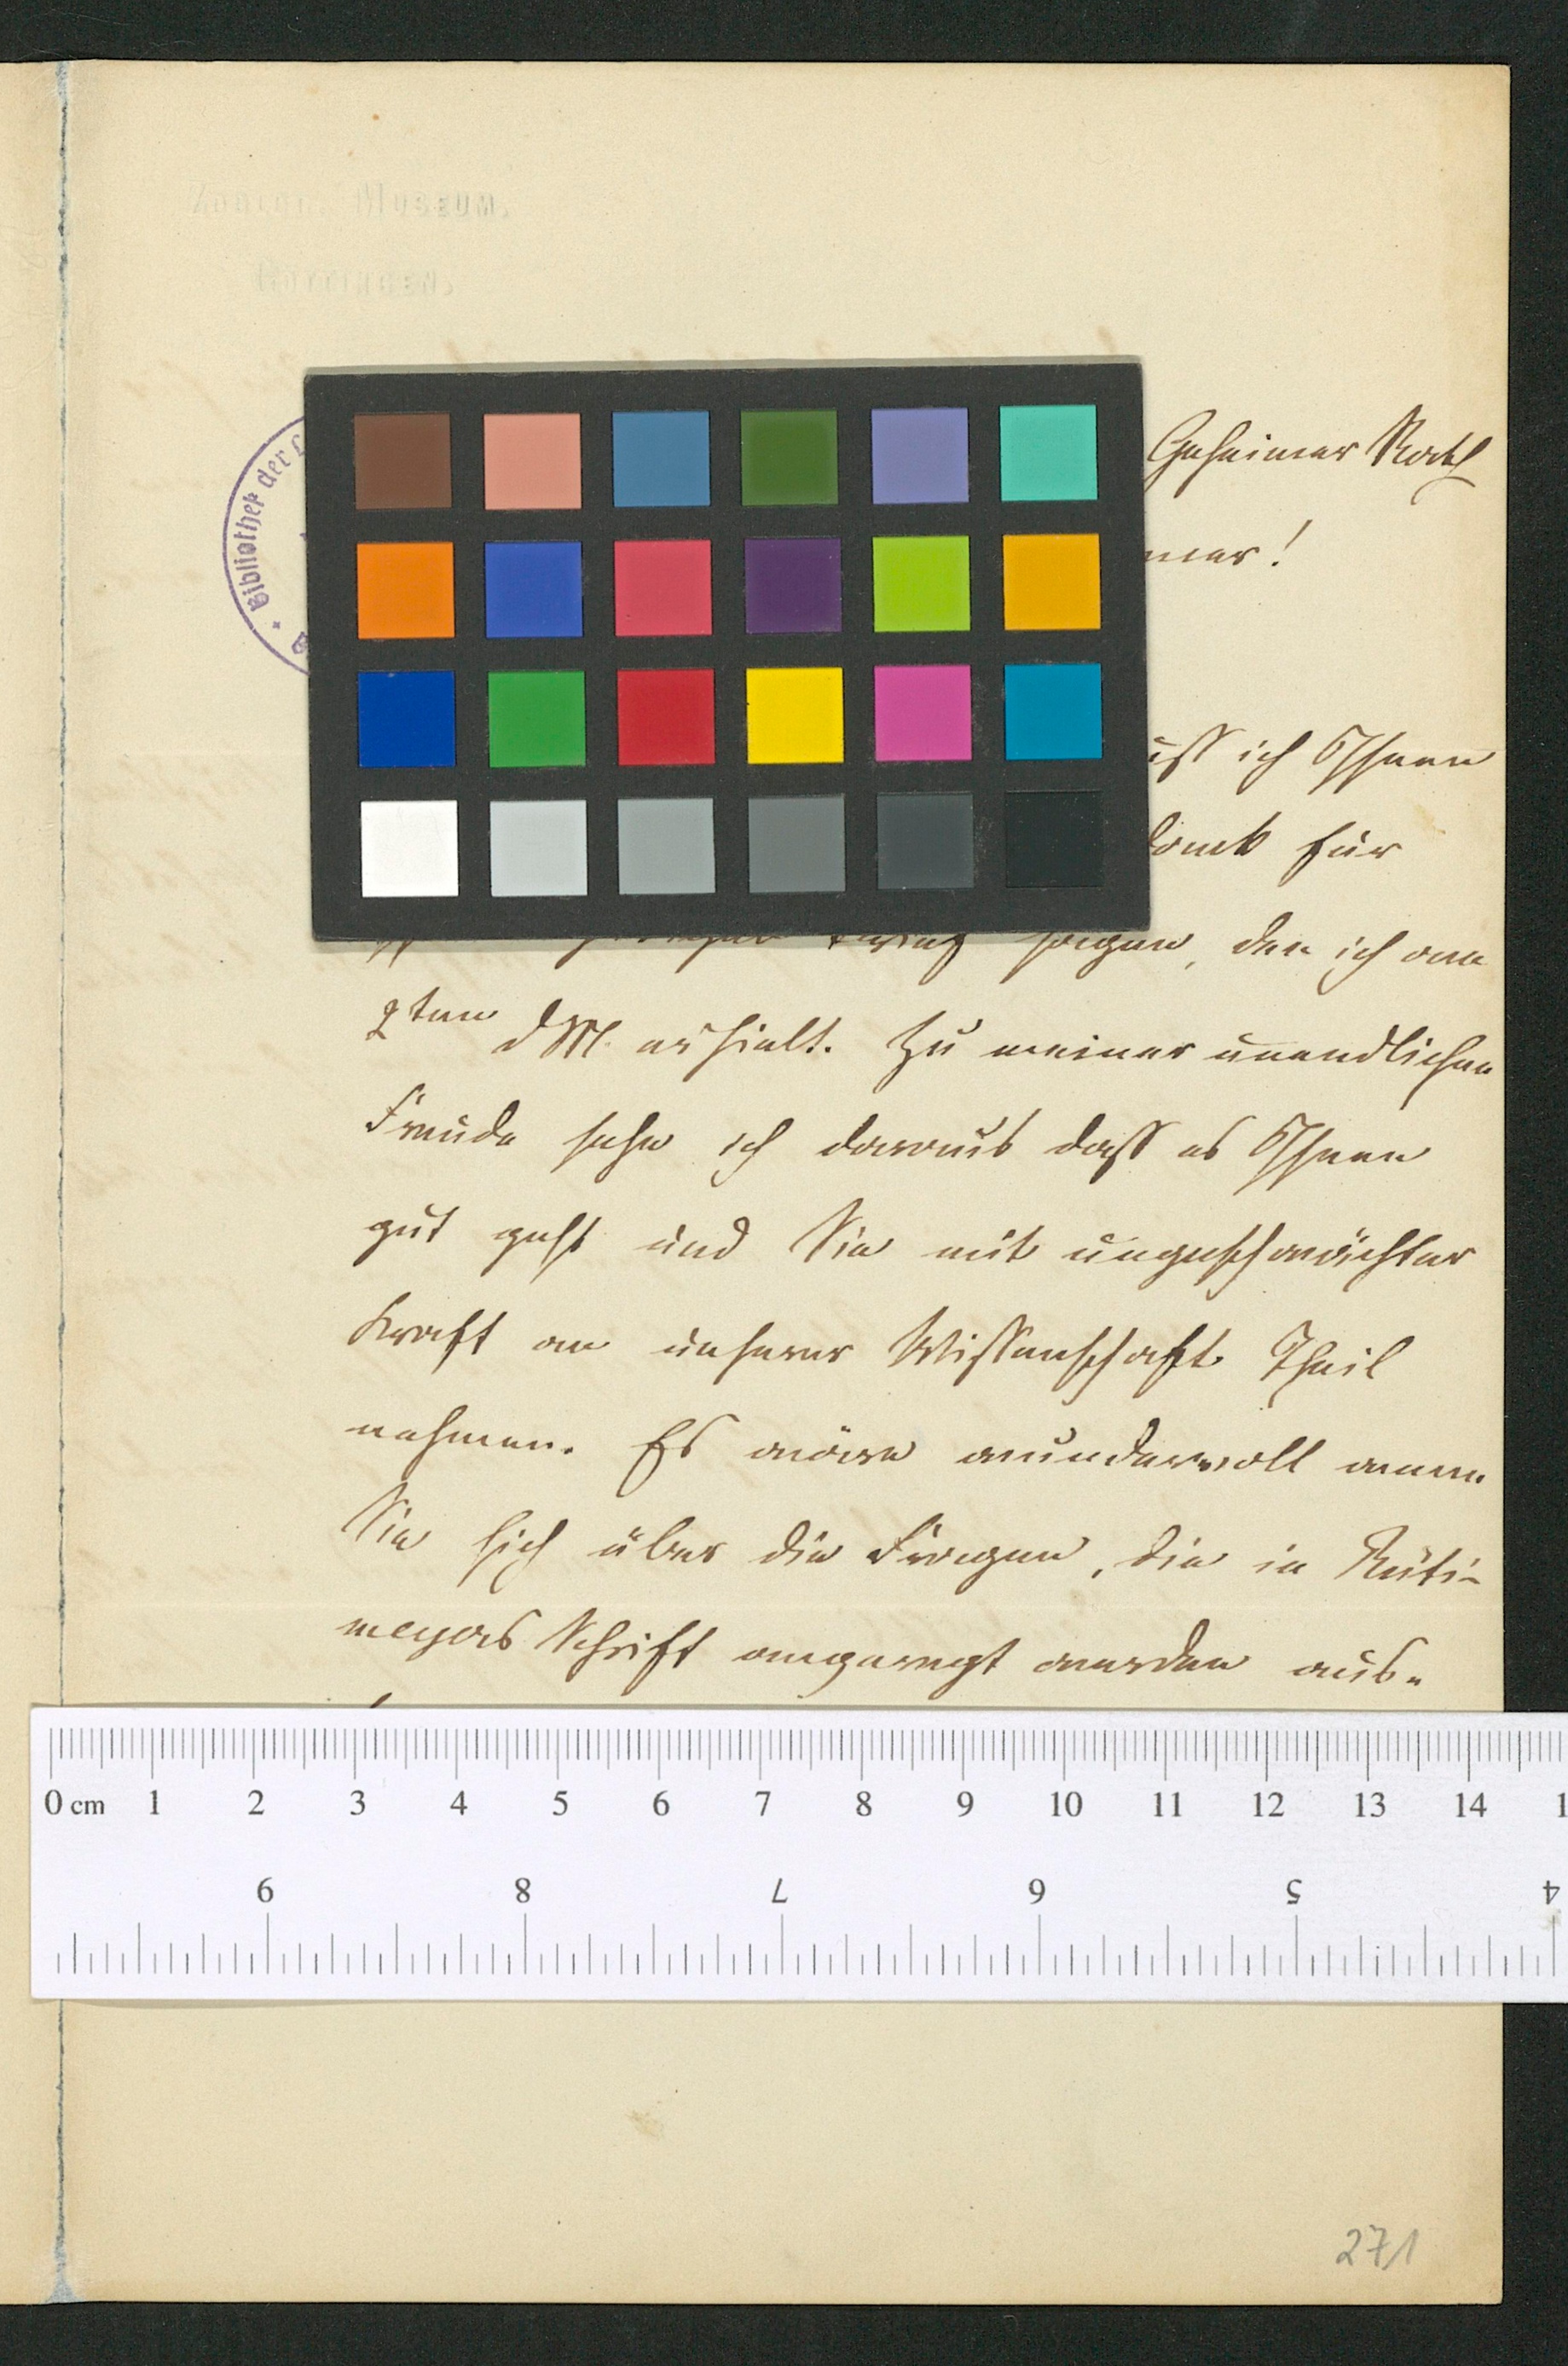 Zoolog. Museum.
Goettingen.
Bibliothek der
Geheimer Rath
mer!
uss ich Ihnen
Dank für
sagen, den ich am
2ten d M. erhielt. Zu meiner unendlichen
Freude sehe ich daraus dass es Ihnen
gut geht und Sie mit ungeschwächter
Kraft an unserer Wissenschaft Theil
nehmen. Es wäre wundervoll wenn
Sie sich über die Fragen, die in Rüti-
meyers Schrift angeregt werden aus-
0 cm 1 2 3 4 5 6 7 8 9 10 11 12 13 14 1
9 8 7 6 5 4
271